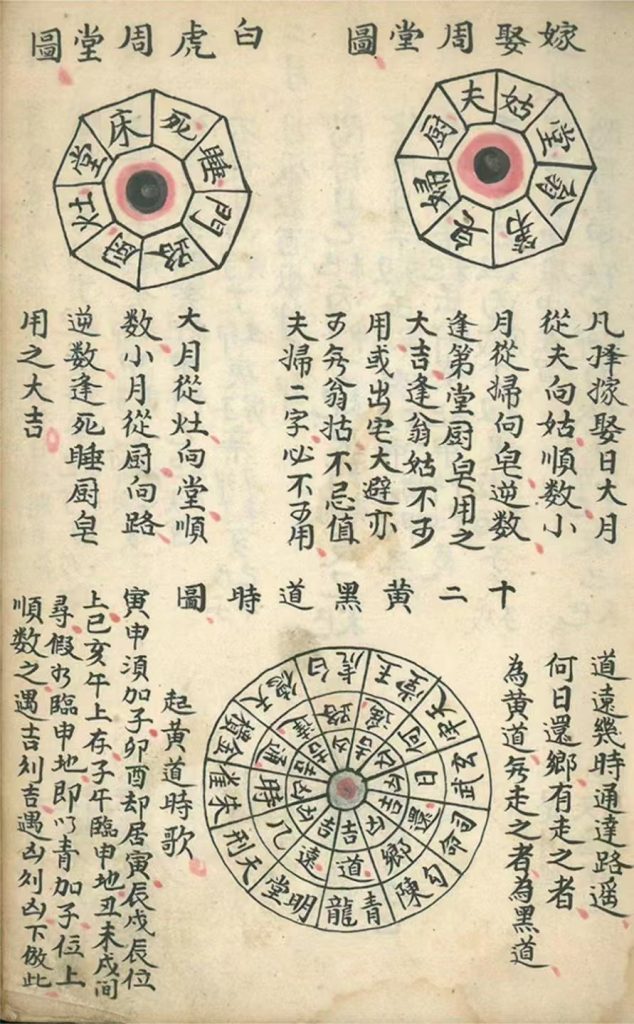 嫁娶周堂圖
夫
姑
堂
翁
第
皂
婦
厨
凡择嫁娶日大月
從夫向姑順数小
月從婦向皂逆数
逢第堂厨皂用之
大吉逢翁姑不可
用或出宅大避亦
可旡翁姑不忌值
夫婦二字必不可用
白虎周堂圖
床
死
睡
門
路
厨
灶
堂
大月從灶向堂順
数小月從厨向路
逆数逢死睡厨皂
用之大吉
十二黄黑道時圖
道遠幾時通達路遥
何日還鄉有走之者
為黄道旡走之者為黑道
青龍
明堂
天刑
朱雀
金櫃
天德
白虎
玉堂
天牢
玄武
司命
勾陳
道
遠
几
時
通
達
路
遥
何
日
還
鄉
吉
吉
凶
凶
吉
吉
凶
吉
凶
凶
吉
凶
起黄道時歌
寅申須加子卯酉却居寅辰戌辰位
上巳亥午上存子午臨申地丑未戌間
尋假如臨申地即以青加子位上
順数之遇吉则吉遇凶则凶下倣此